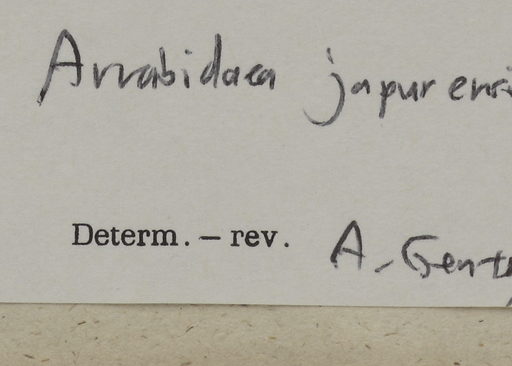 Arrabidaea japurensi
Determ. – rev. A. Gentr